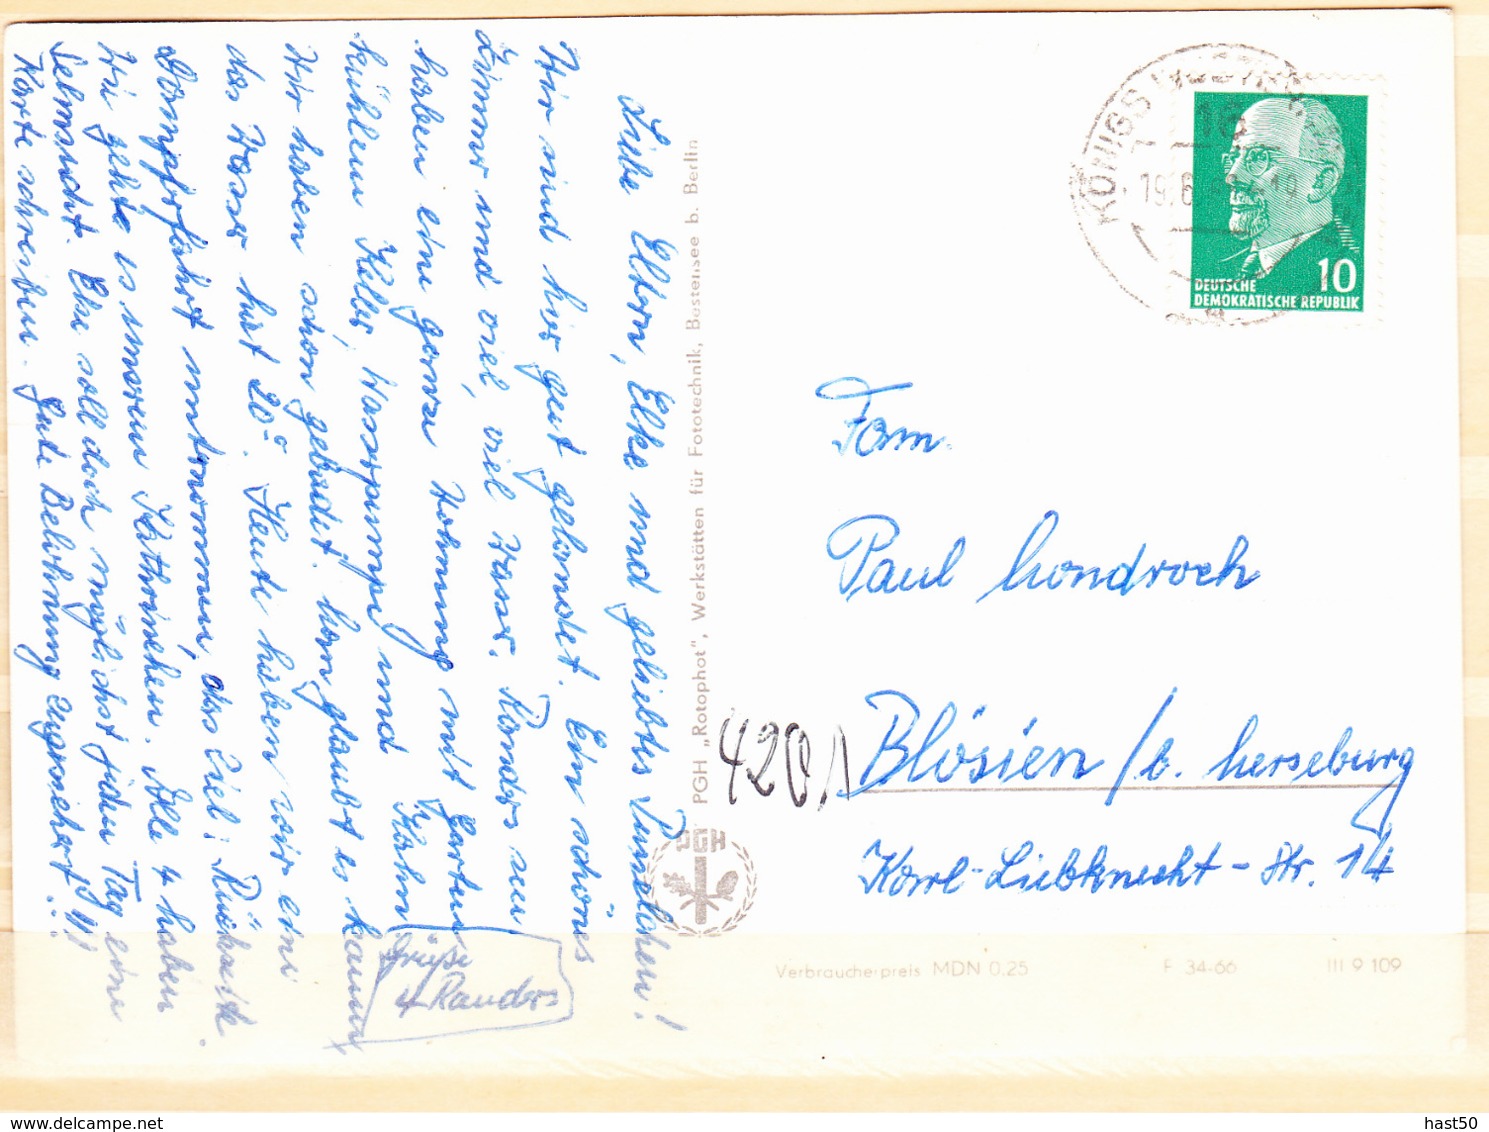 Liebe Eltern, Elke und geliebtes Pünelchen!
Wir sind hier gut gelandet. Ein schönes
Zimmer und viel, viel Wasser. Randers
haben eine ganze Wohnung mit Garten,
kühlem Keller, Wasserpumpe und Kahn.
Wir haben schon gebadet. Man glaubt es kaum,
das Wasser hat 20°C. Heute haben wir eine
Dampferfahrt unternommen, das Ziel:
Wie geht es unserem Kathrinchen. Alle 4 haben
Sehnsucht. Elke soll doch möglichst jeden Tag eine
Karte schreiben. Gute Belohnung zugesichert!!
Grüße
4 Randers
PGH „Rotophot", Werkstätten für Fototechnik, Bestensee b. Berlin
PGH
KÖNIGS WUSTERHAUSEN
19.6.
DEUTSCHE
DEMOKRATISCHE REPUBLIK
10
Fam.
Paul Hondroch
4201
Blösien / b. Merseburg
Karl-Liebknecht-Str. 14
Verbraucherpreis MDN 0.25 F 34-66 III 9 109
hast50